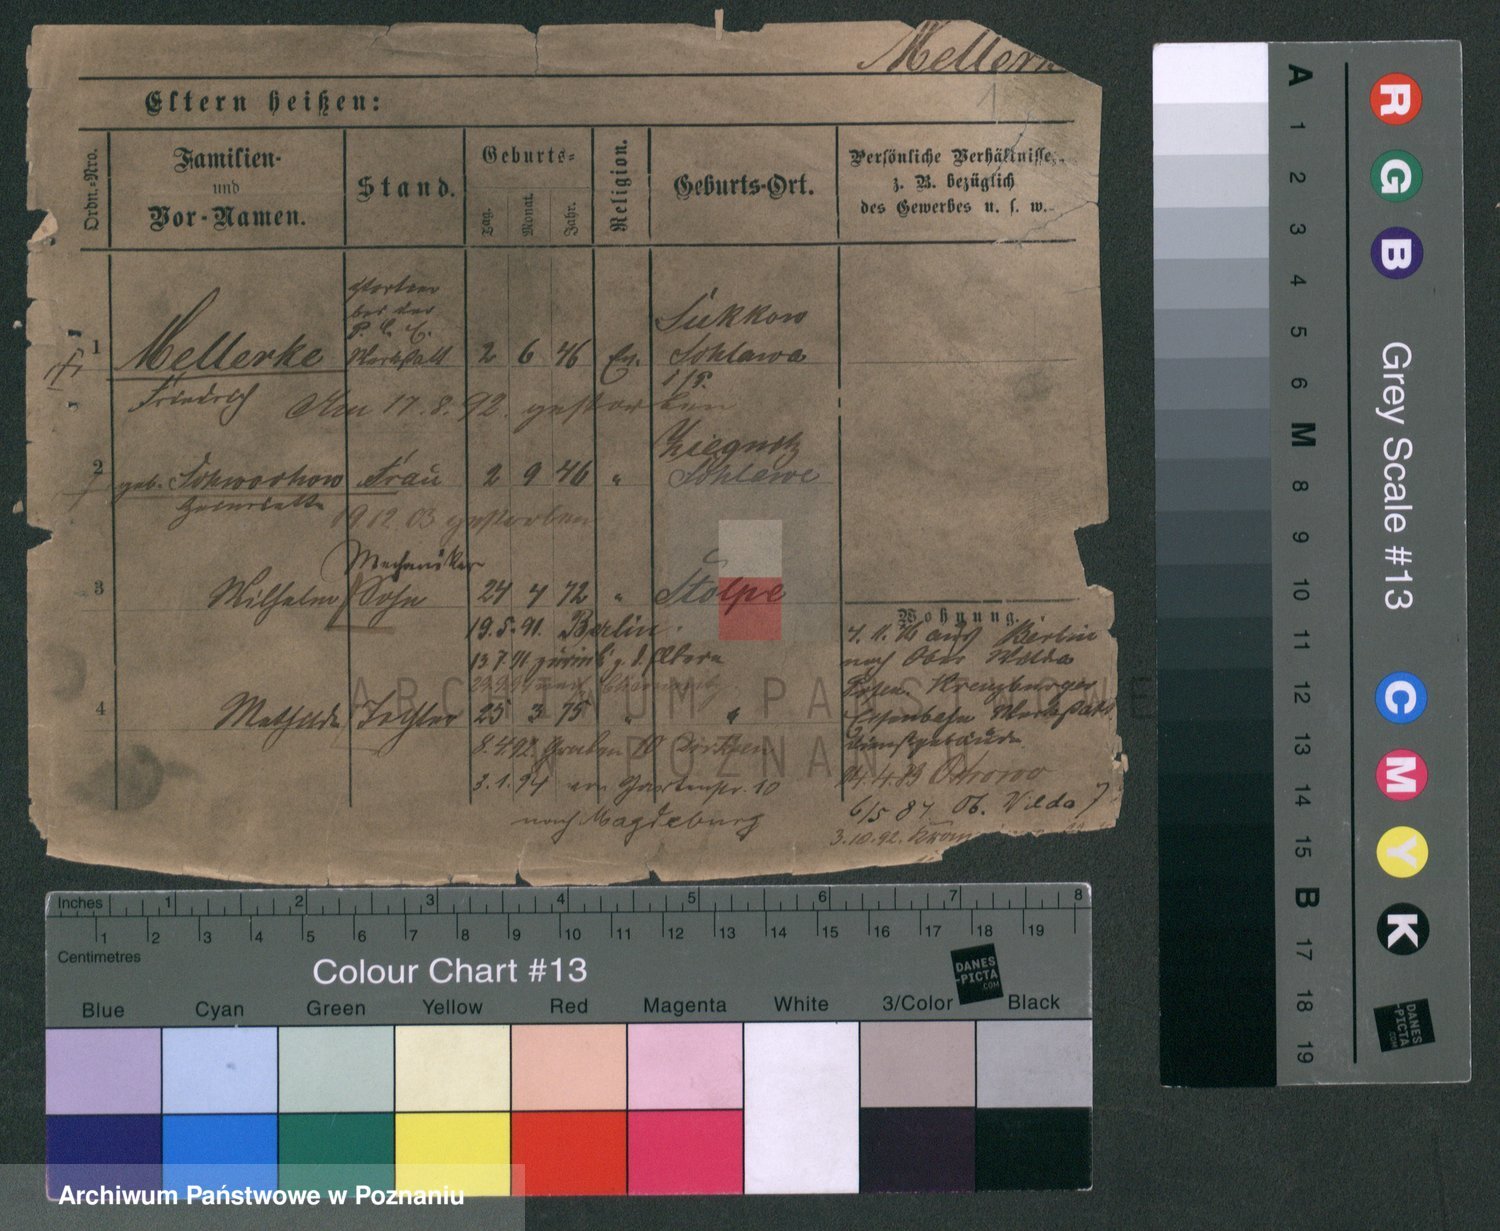 Mellerke
Eltern heißen:
Ordn.=Nro.
Familien-
und
Vor-Namen.
Stand.
Geburts=
Tag.
Monat.
Jahr.
Religion.
Geburts-Ort.
Persönliche Verhältnisse,
z. B. bezüglich
des Gewerbes u. s. w.
bei der
1 Mellerke Werkstatt 2 6 46 Ev. Sukkow
Schlawa
Friedrich
Am 17.8.92. gestorben
2 geb. Frau 2 9 46 " 
Schlawe
19 12 03 gestorben
Mechaniker
3 Wilhelm Sohn 24 4 72 " Stolpe
19.5.91. Berlin.
13.7.91 zurück z. d. Eltern
4 Mathilde Tochter 25 3 75 " "
8.4.92 Graben 10
3.1.94 Gartenstr. 10
nach Magdeburg
Wohnung.
aus Berlin
nach Ober Wilda
Posen. Kreuzburger
Eisenbahn Werkstatt
Dienstgebäude
4.83 Ostrowo
6/5 87 Ob. Vilda 7
3.10.92.
ARCHIWUM PAŃSTWOWE
W POZNANIU
Inches 1 2 3 4 5 6 7 8
1 2 3 4 5 6 7 8 9 10 11 12 13 14 15 16 17 18 19
Centimetres
Colour Chart #13
DANES
-PICTA
.COM
Blue Cyan Green Yellow Red Magenta White 3/Color Black
A 1 2 3 4 5 6 M 8 9 10 11 12 13 14 15 B 17 18 19
R G B
Grey Scale #13
C M Y K
DANES
-PICTA
.COM
Archiwum Państwowe w Poznaniu